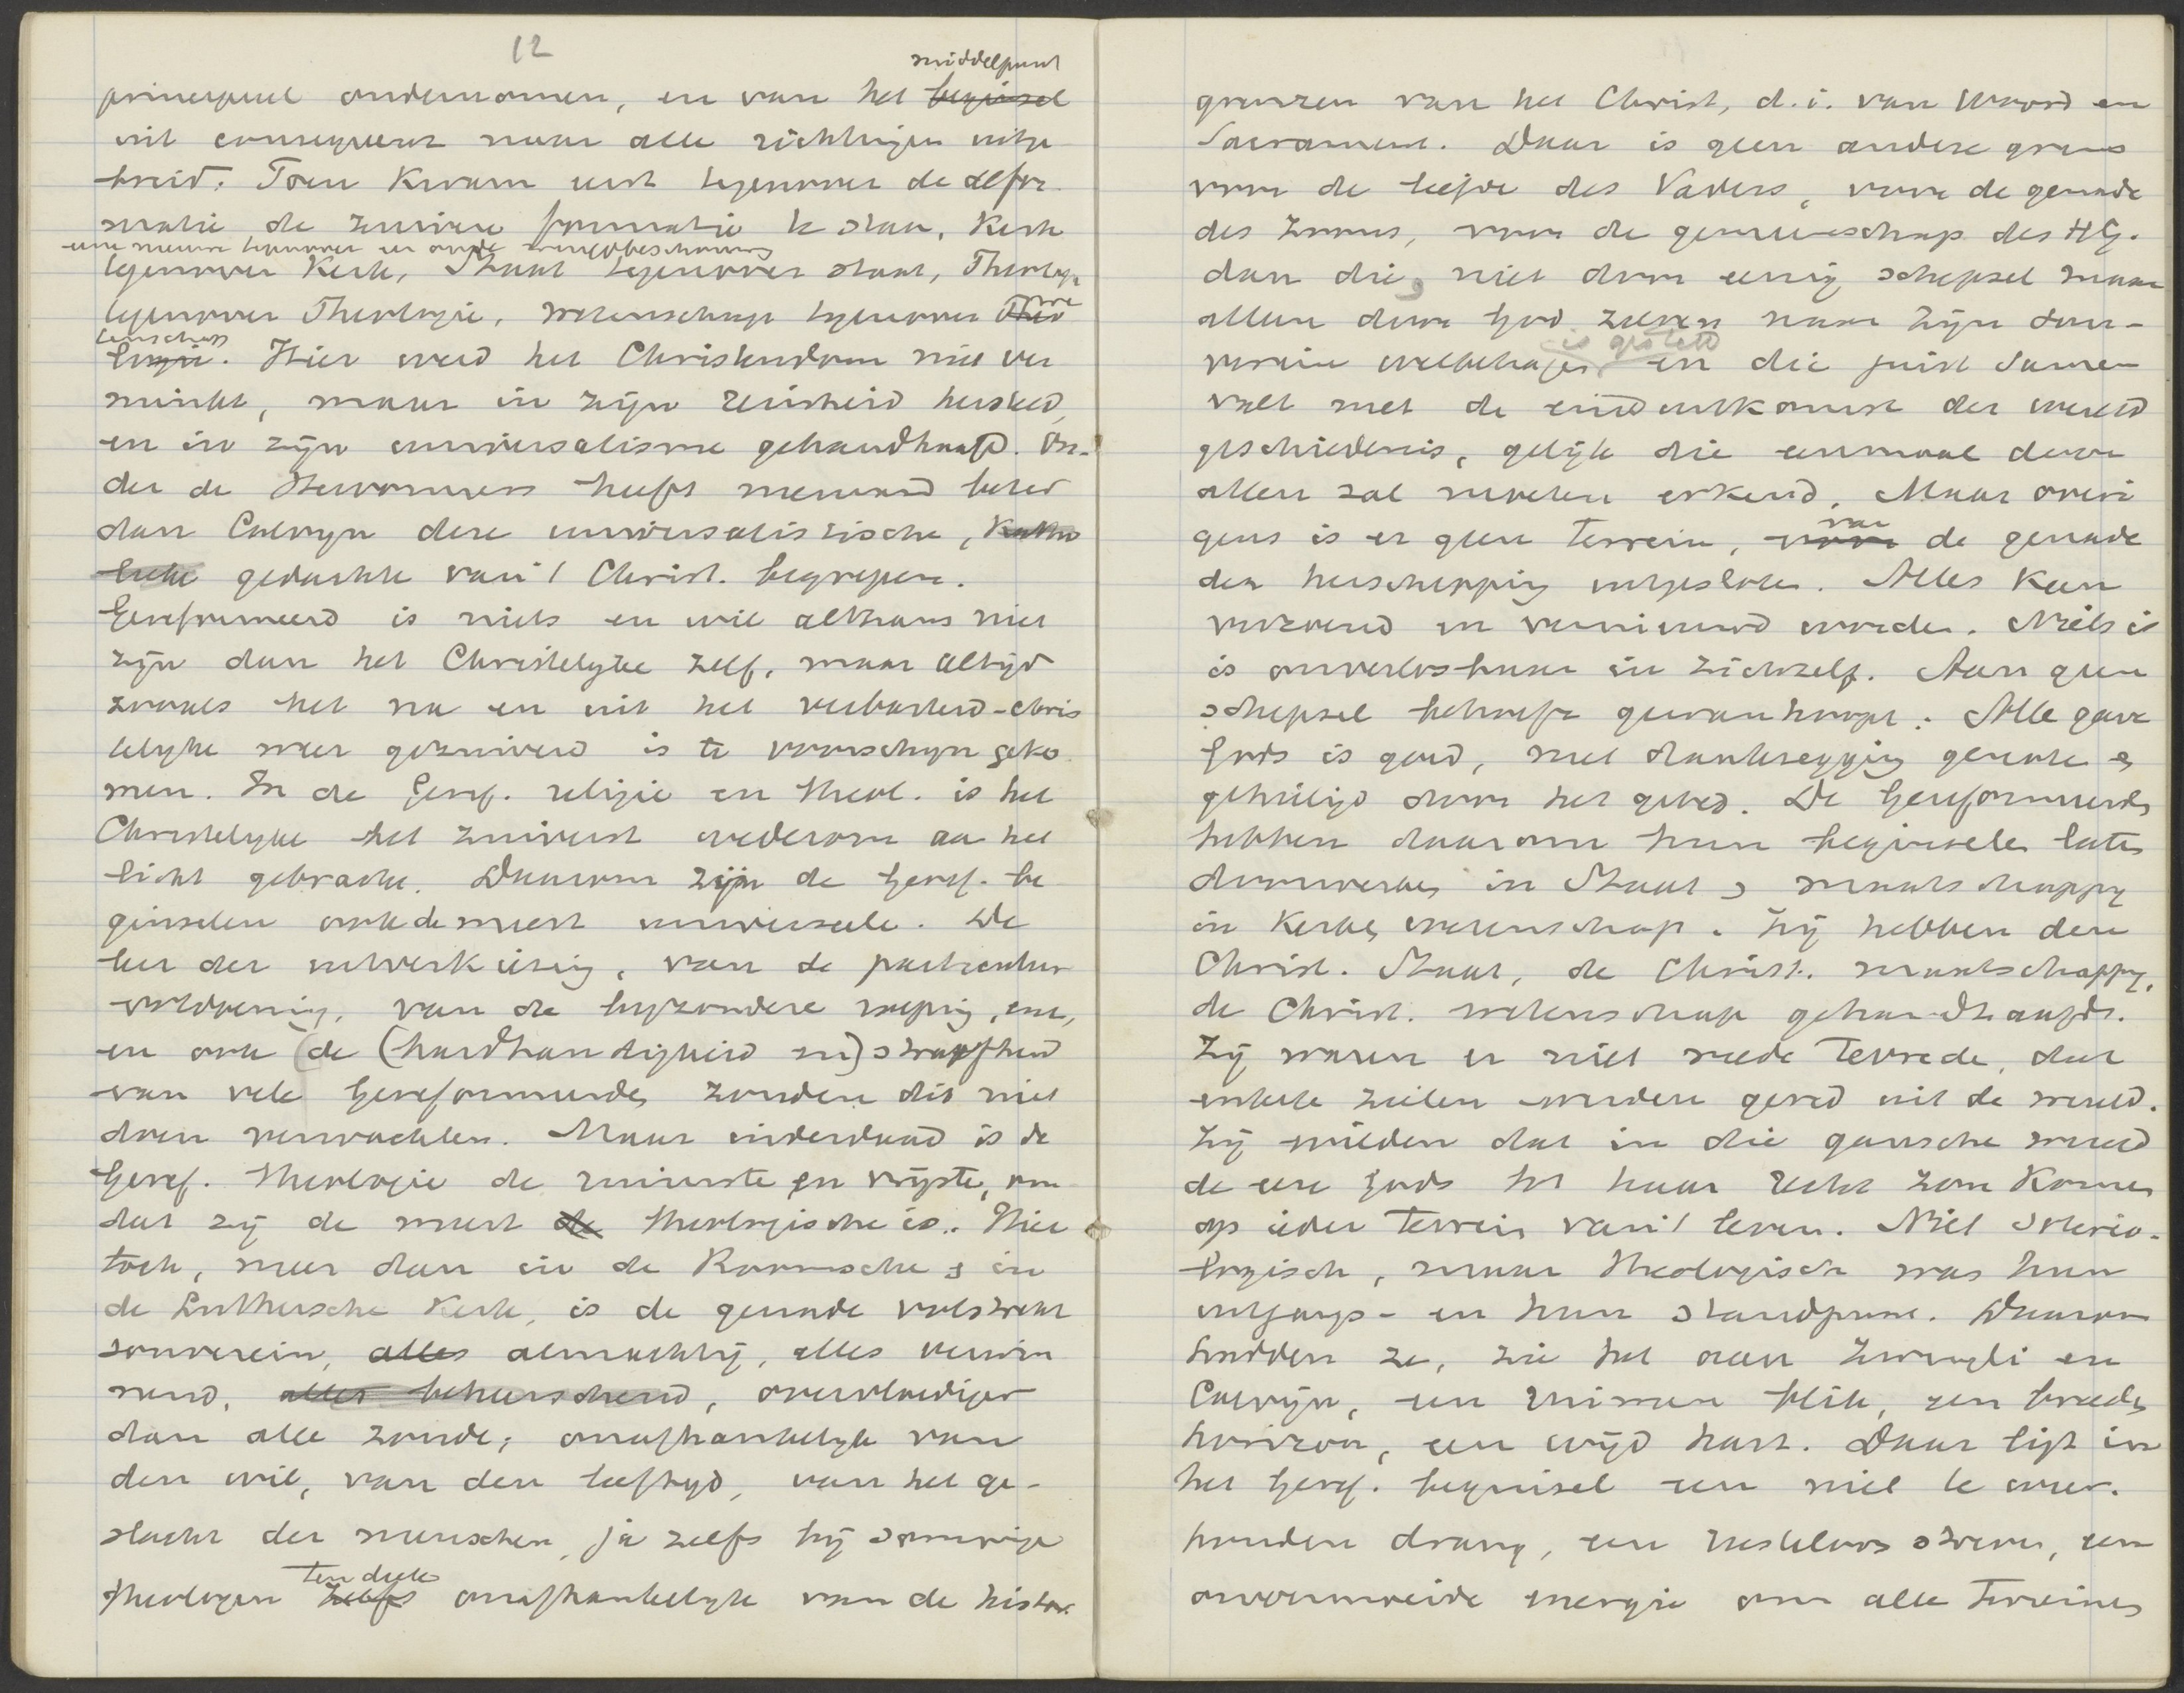 12
middelpunt
principieel ondernomen, en van het beginsel
uit consequent naar alle richtingen uitge
breid. Toen kwam eerst tegenover de defor
matie de zuivere formatie te staan, Kerk
eene nieuwe tegenover en oude wereldbeschouwing
tegenover Kerk, Staat tegenover staat, Theologie
tegenover Theologie, wetenschap tegenover Theo we
tenschap
logie. Hier werd het Christendom niet ver
minkt, maar in zijn reinheid hersteld
en in zijn universalisme gehandhaafd. On-
der de Hervormers heeft niemand beter
dan Calvyn deze universalistische, Katho
lieke gedachte van 't Christ. begrepen.
Gereformeerd is niets en wil althans niet
zijn dan het Christelyke zelf, maar altijd
zooals het na en uit het verbasterd-chris
telyke weer gezuiverd is te voorschyn geko
men. In de Geref. religie en theol. is het
Christelyke het zuiverst wederom aan het
licht gebracht. Daarom zijn de Geref. be
ginselen ook de meest universeele. De
leer der uitverkiezing, van de particuliere
voldoening, van de byzondere roeping, enz,
en ook (de (hardhandigheid en) strafheid
van vele Gereformeerden zouden dit niet
doen verwachten. Maar inderdaad is de
Geref. theologie de ruimste en vrijste, om
dat zij de meest de theologische is. Hier
toch, meer dan in de Roomsche & in
de Luthersche Kerk, is de genade volstrekt
souverein, alles almachtig, alles verwin
nend, alles beheerschend, overvloediger
dan alle zonde; onafhankelyk van
den wil, van den leeftyd, van het ge-
slacht der menschen, ja zelfs bij sommige
ten deele
theologen zelfs onafhankelyk van de histor.
grenzen van het Christ, d.i. van Woord en
Sacrament. Daar is geen andere grens
voor de liefde des Vaders, voor de genade
des Zoons, voor de gemeenschap des HG.
dan die, niet door eenig schepsel maar
alleen door God zelven naar zijn sou-
is gesteld
verein welbehagen en die juist samen
valt met de einduitkomst der wereld
geschiedenis, gelijk die eenmaal door
allen zal worden erkend. Maar overi
van
gens is er geen terrein, voor de genade
der herschepping uitgesloten. Alles kan
verzoend en vernieuwd worden. Niets is
is onverlosbaar in zichzelf. Aan geen
schepsel behoeft gewanhoopt. Alle gave
Gods is goed, met dankzegging genoten &
geheiligd door het gebed. De Gereformeerden
hebben daarom hun beginselen laten
doorwerken in Staat & maatschappy
in Kerk & wetenschap. Zij hebben den
Christ. Staat, de Christ. maatschappy,
de Christ. wetenschap gehandhaafd.
Zij waren er niet mede tevrede, dat
enkele zielen werden gered uit de wereld.
Zij wilden dat in die gansche wereld
de eere Gods tot haar recht zou komen
op ieder terrein van 't leven. Niet soterio-
logisch, maar theologisch was hun
uitgangs- en hun standpunt. Daarom
hadden ze, zie het aan Zwingli en
Calvijn, een ruimen blik, een breeden
horizon, een wijd hart. Daar ligt in
het Geref. beginsel een niet te weer.
houden drang, een rusteloos streven, een
onvermoeide energie om alle terreinen